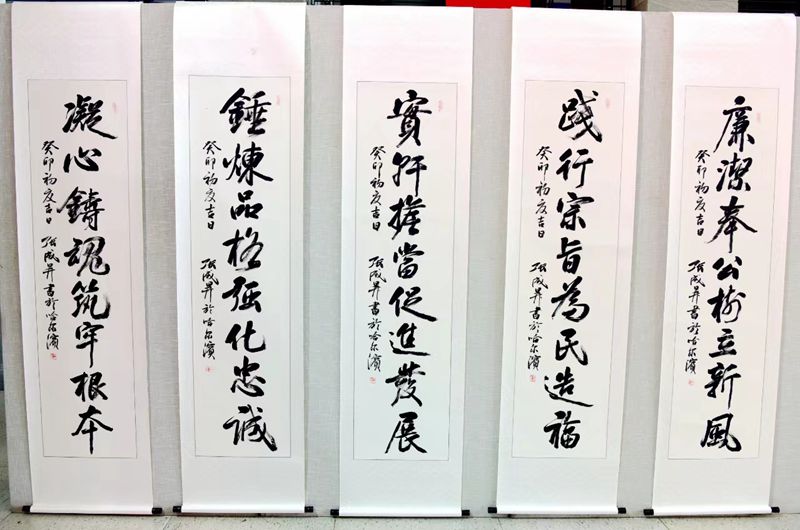 凝心鑄魂筑牢根本
癸卯初夏吉日 张成昇書於哈尔濱
錘煉品格强化忠誠
癸卯初夏吉日 张成昇於哈尔濱
實幹擔當促進發展
癸卯初夏吉日 张成昇書於哈尔濱
踐行宗旨為民造福
癸卯初夏吉日 张成昇書於哈尔濱
廉潔奉公樹立新風
癸卯初夏吉日 张成昇書於哈尔濱